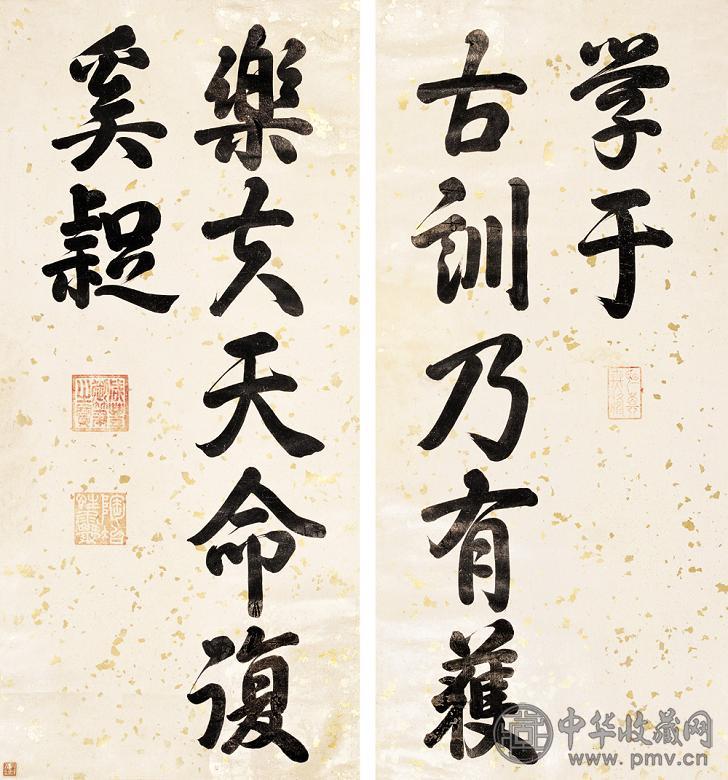 学于
古訓乃有獲
樂夫天命復
奚疑
中华收藏网
www.pmv.cn